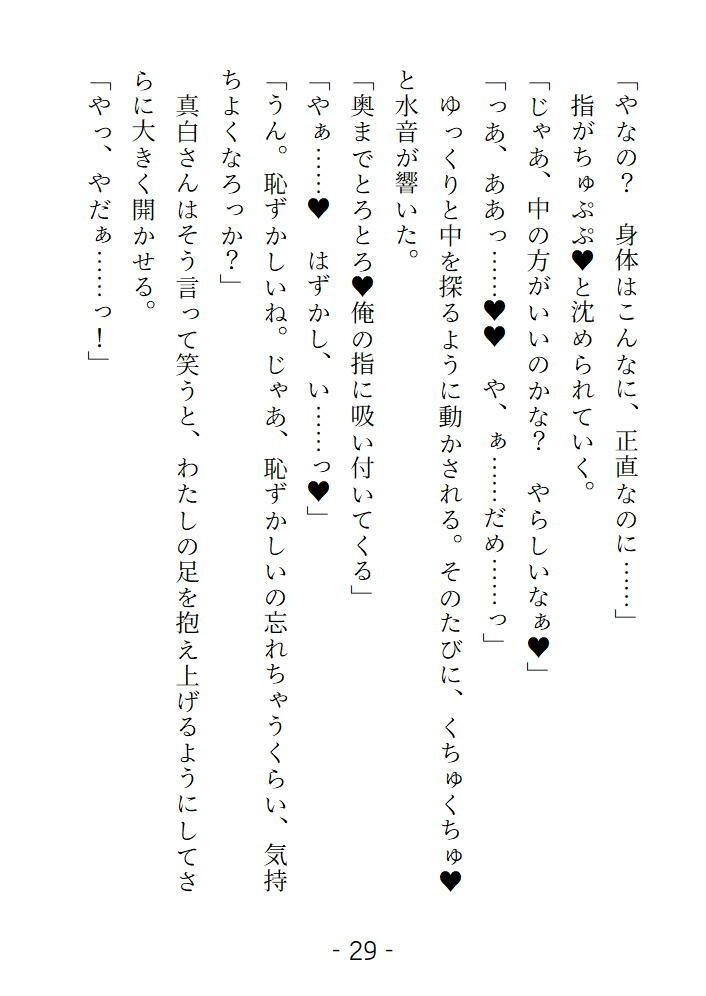 「やなの？　身体はこんなに、正直なのに……」
　指がちゅぷぷ♥と沈められていく。
「じゃあ、中の方がいいのかな？　やらしいなぁ♥」
「っあ、ああっ……♥♥　や、ぁ……だめ……っ」
　ゆっくりと中を探るように動かされる。そのたびに、くちゅくちゅ♥
と水音が響いた。
「奥までとろとろ♥俺の指に吸い付いてくる」
「やぁ……♥　はずかし、い……っ♥」
「うん。恥ずかしいね。じゃあ、恥ずかしいの忘れちゃうくらい、気持
ちよくなろっか？」
　真白さんはそう言って笑うと、わたしの足を抱え上げるようにしてさ
らに大きく開かせる。
「やっ、やだぁ……っ！」
- 29 -